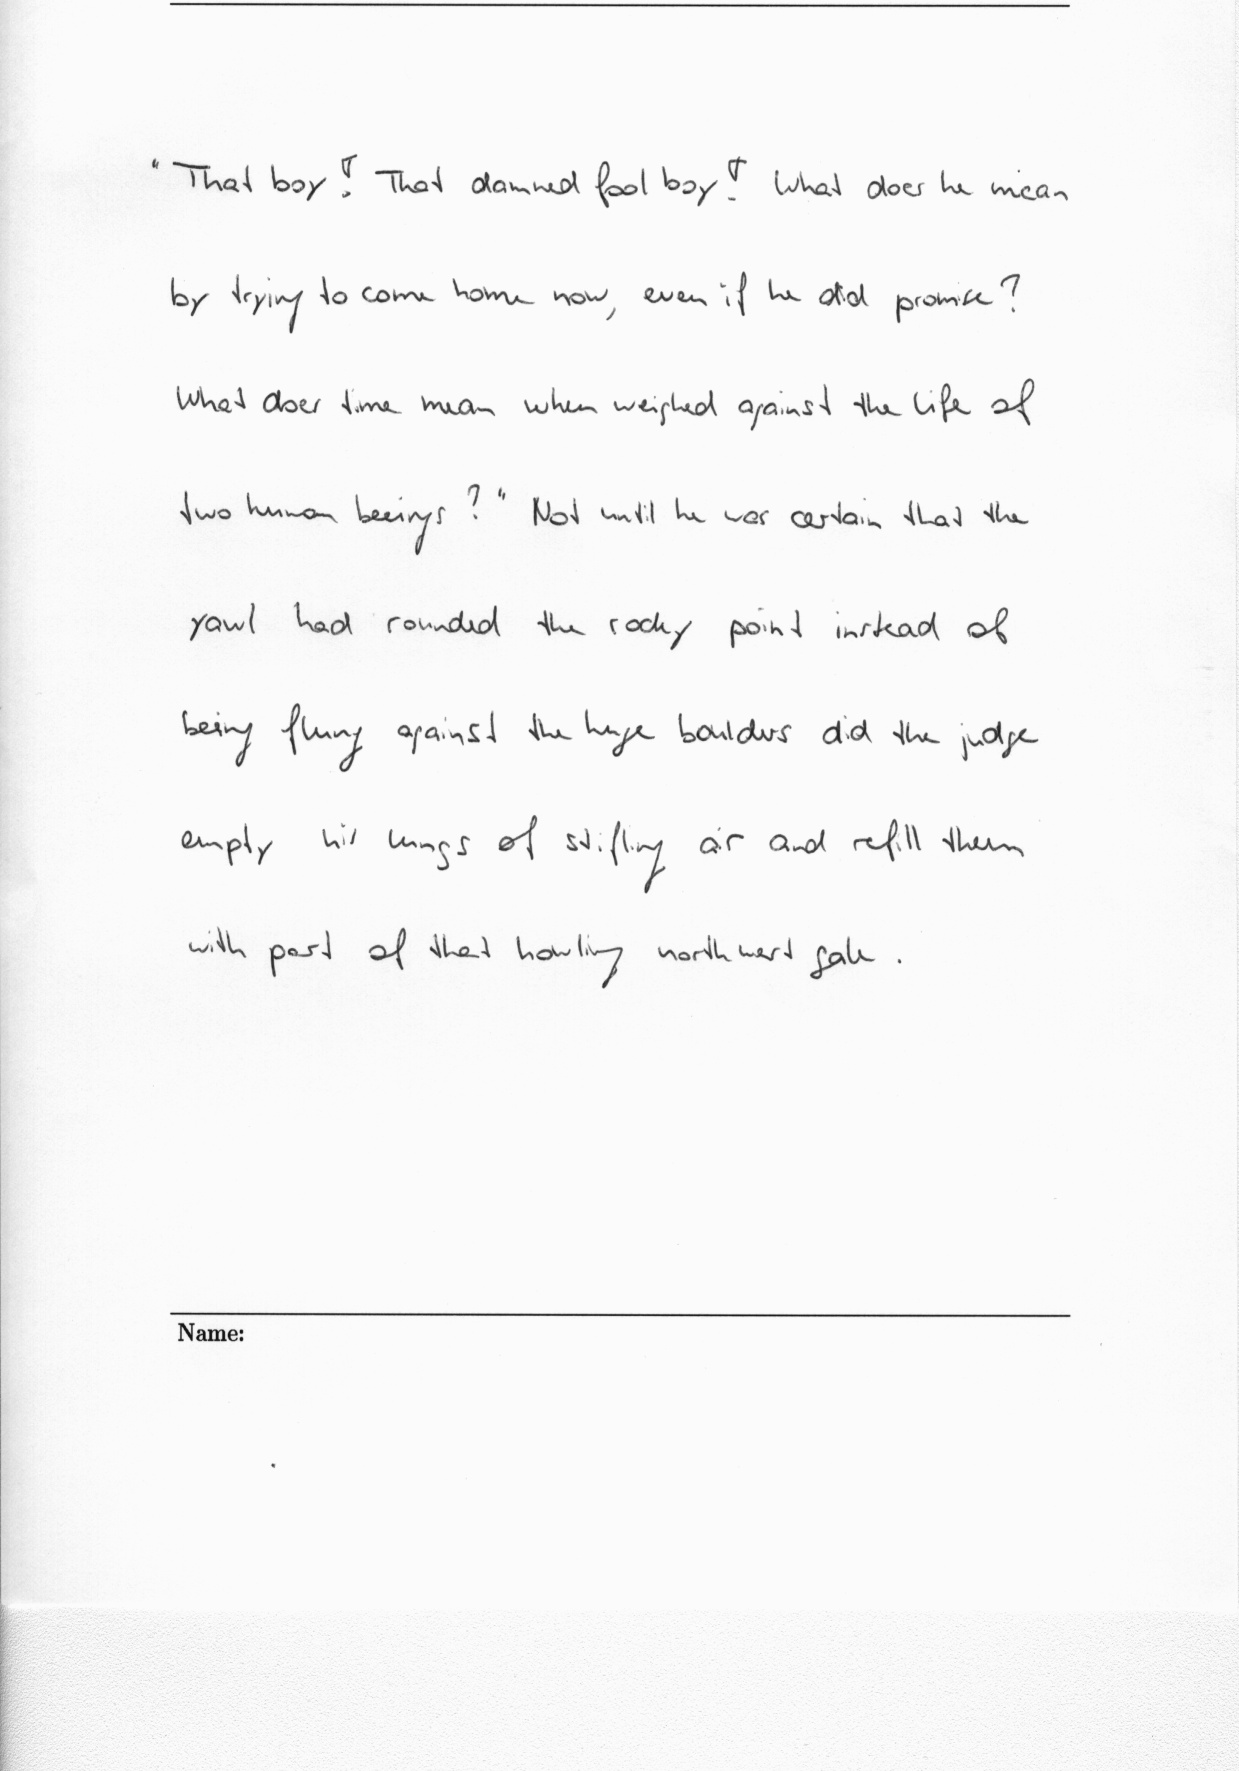 "That boy! That damned fool boy! What does he mean
by trying to come home now, even if he did promise?
What does time mean when weighed against the life of
two human beeings?" Not until he was certain that the
yawl had rounded the rocky point instead of
being flung against the huge boulders did the judge
empty his lungs of stifling air and refill them
with part of that howling northwest gale.
Name: